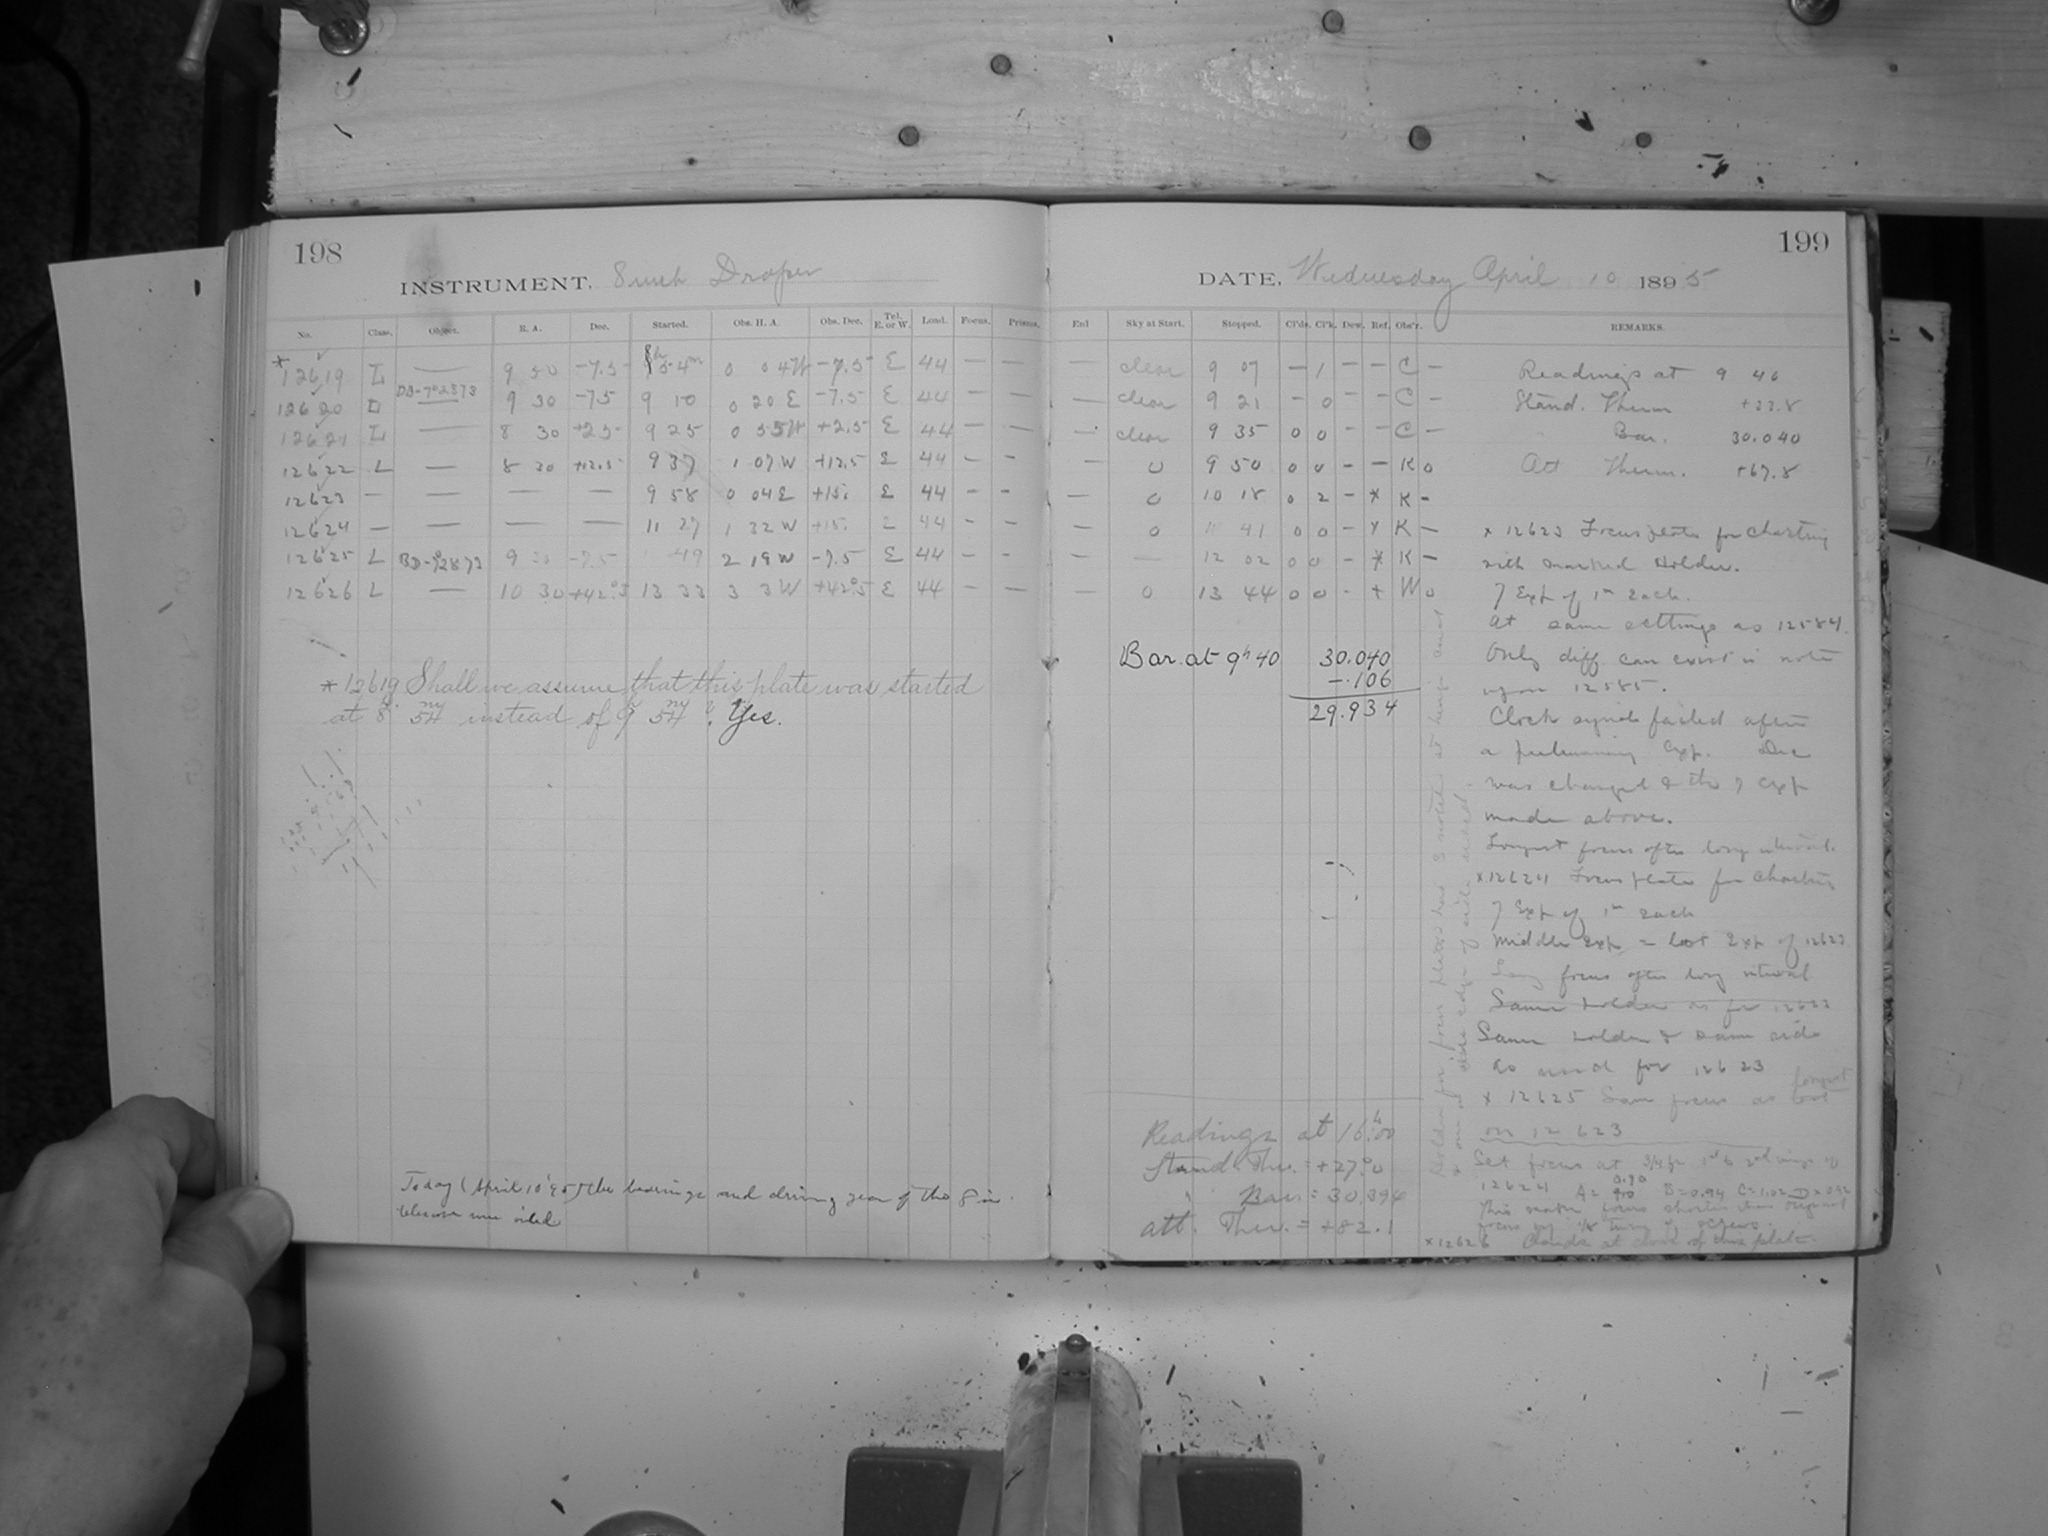 198
INSTRUMENT. 8 inch Draper
No. Class. Object. R. A. Dec. Started. Obs. H. A. Obs. Dec. Tel. E. or W. Load. Focus. Prisms.
*12619 L — 9 50 -7.5 8h 54m 0 04W -7.5 E 44 — —
12620 D 9 30 -7.5 9 10 0 20 E -7.5 E 44 — —
12621 L — 8 30 +2.5 9 25 0 55W +2.5 E 44 — —
12622 L — 8 30 +12.5 9 37 1 07 W +12.5 E 44 - -
12623 — — — — 9 58 0 04E +15. E 44 - -
12624 — — — — 11 27 1 32 W +15. E 44 - -
12625 L 9 30 -7.5 49 2 19 W -7.5 E 44 - -
12626 L — 10 30 +42°.5 13 33 3 3W +42°.5 E 44 — —
* 12619 Shall we assume that this plate was started
at 8h 54m instead of 9h 54m? Yes.
Today (April 10 '95) the bearings and driving gear of the 8 in.
telescope were oiled
199
DATE, Wednesday April 10 1895
Enl Sky at Start. Stopped. Cl'ds. Cl'k. Dew. Ref. Obs'r. REMARKS.
— clear 9 07 — 1 — — C —
— clear 9 21 - 0 - - C -
— clear 9 35 0 0 - - C —
— 0 9 50 0 0 - — K 0
— 0 10 18 0 2 - * K -
— 0 11 41 0 0 - x K —
— — 12 02 0 0 - * K —
— 0 13 44 0 0 - + W 0
Bar. at 9h 40 30.040
-.106
29.934
Readings at 16h:00
Stand. Ther. = +27°.0
" Bar = 30.394
att. Ther. = +82.1
Readings at 9 40
Stand. Therm +33.8
" Bar. 30.040
Att Therm. +67.8
x 12623 Focus plate for Charting
with marked Holder.
7 Exp of 1m each.
At same settings as 12584.
Only diff. can exist in note
upon 12585.
Clock synch failed after
a preliminary Exp. Dec
was changed & the 7 Exp
made above.
Longest focus after long interval.
x 12624 Focus plate for Charting
7 Exp of 1m each
Middle Exp = last Exp of 12623
Long focus after long interval
Same Holder as for 12623
Same Holder & same side
as used for 12623
x 12625 Same focus as longest last
on 12623
Set focus at
12624 A = B=0.94 C=1.02
This makes focus shorter than original
focus by 1/8 turn of screws.
x 12626 Clouds at close of this plate.